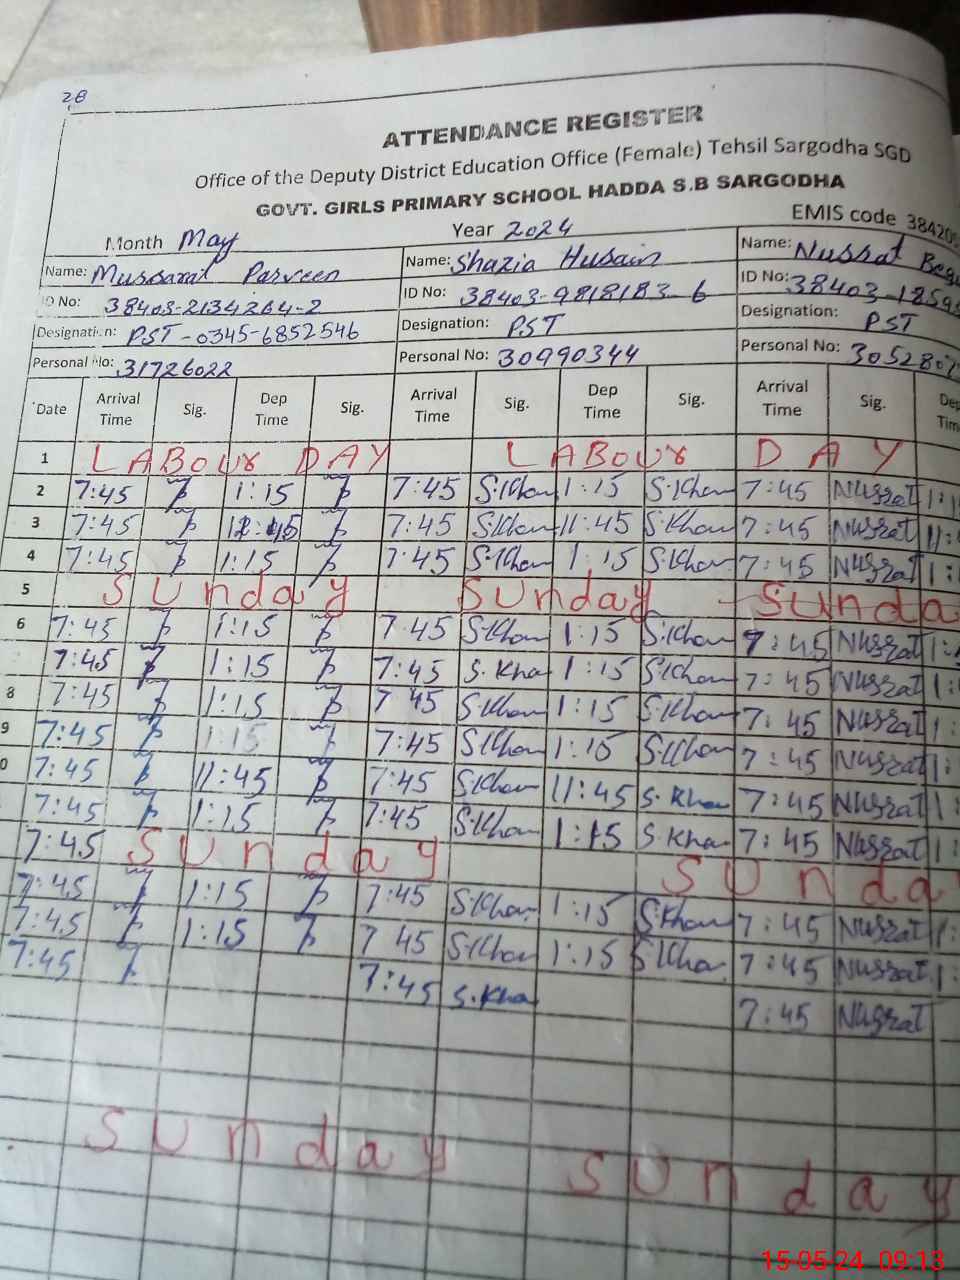 28
ATTENDANCE REGISTER
Office of the Deputy District Education Office (Female) Tehsil Sargodha SGD
GOVT. GIRLS PRIMARY SCHOOL HADDA S.B SARGODHA
EMIS code 38420
Month May Year 2024
Name: Mussarat Parveen Name: Shazia Husain Name: Nussrat
ID No: 38403-2134264-2 ID No: 38403-9818183-6 ID No: 38403-1859
Designation: PST-0345-6852546 Designation: PST Designation: PST
Personal No: 31726022 Personal No: 30990344 Personal No: 305280
Date Arrival Time Sig. Dep Time Sig. Arrival Time Sig. Dep Time Sig. Arrival Time Sig. Dep
1 LABOUR DAY LABOUR DAY
2 7:45 1:15 7:45 S.Khan 1:15 S.Khan 7:45 Nussrat
3 7:45 12:45 7:45 S.Khan 11:45 S.Khan 7:45 Nussrat
4 7:45 1:15 7:45 S.Khan 1:15 S.Khan 7:45 Nussrat
5 Sunday Sunday Sunda
6 7:45 1:15 7:45 S.Khan 1:15 S.Khan 7:45 Nussrat
7:45 1:15 7:45 S.Kha 1:15 S.Khan 7:45 Nussrat
8 7:45 1:15 7 45 S.Khan 1:15 S.Khan 7:45 Nussrat
9 7:45 1:15 7:45 S.Khan 1:15 S.Khan 7:45 Nussrat
0 7:45 11:45 7:45 S.Khan 11:45 S.Khan 7:45 Nussrat
7:45 1:15 7:45 S.Khan 1:15 S.Khan 7:45 Nussrat
7:45 Sunday Sunda
7:45 1:15 7:45 S.Khan 1:15 S.Khan 7:45 Nussrat
7:45 1:15 7 45 S.Khan 1:15 S.Khan 7:45 Nussrat
7:45 7:45 S.Kha 7:45 Nussrat
Sunday Sunday
15-05-24 09:13